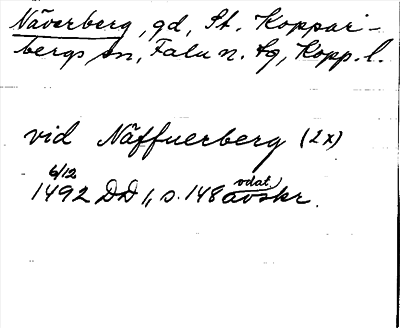 Näverberg, gd, St. Koppar-
bergs sn, Falu n. tg, Kopp. l.
vid Näffuerberg (2x)
6/12
1492 DD 1, s. 148 avskr.
vdat